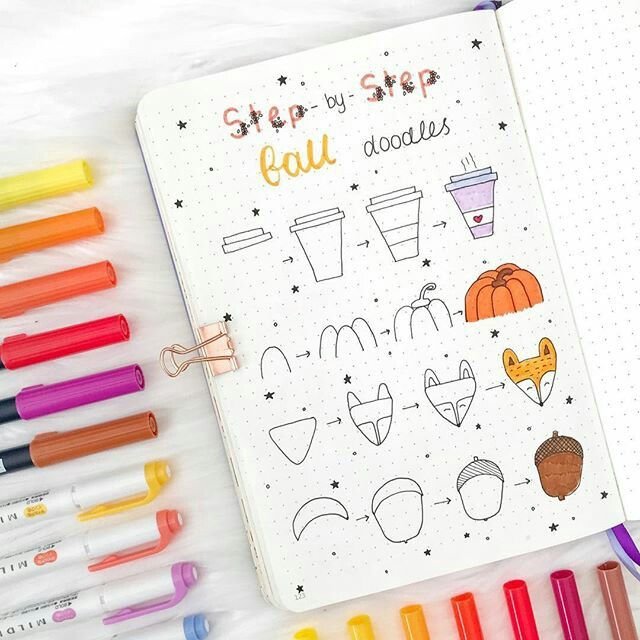 Step - by - Step
fall doodles
MILD
MILD
MILD
MILD
13